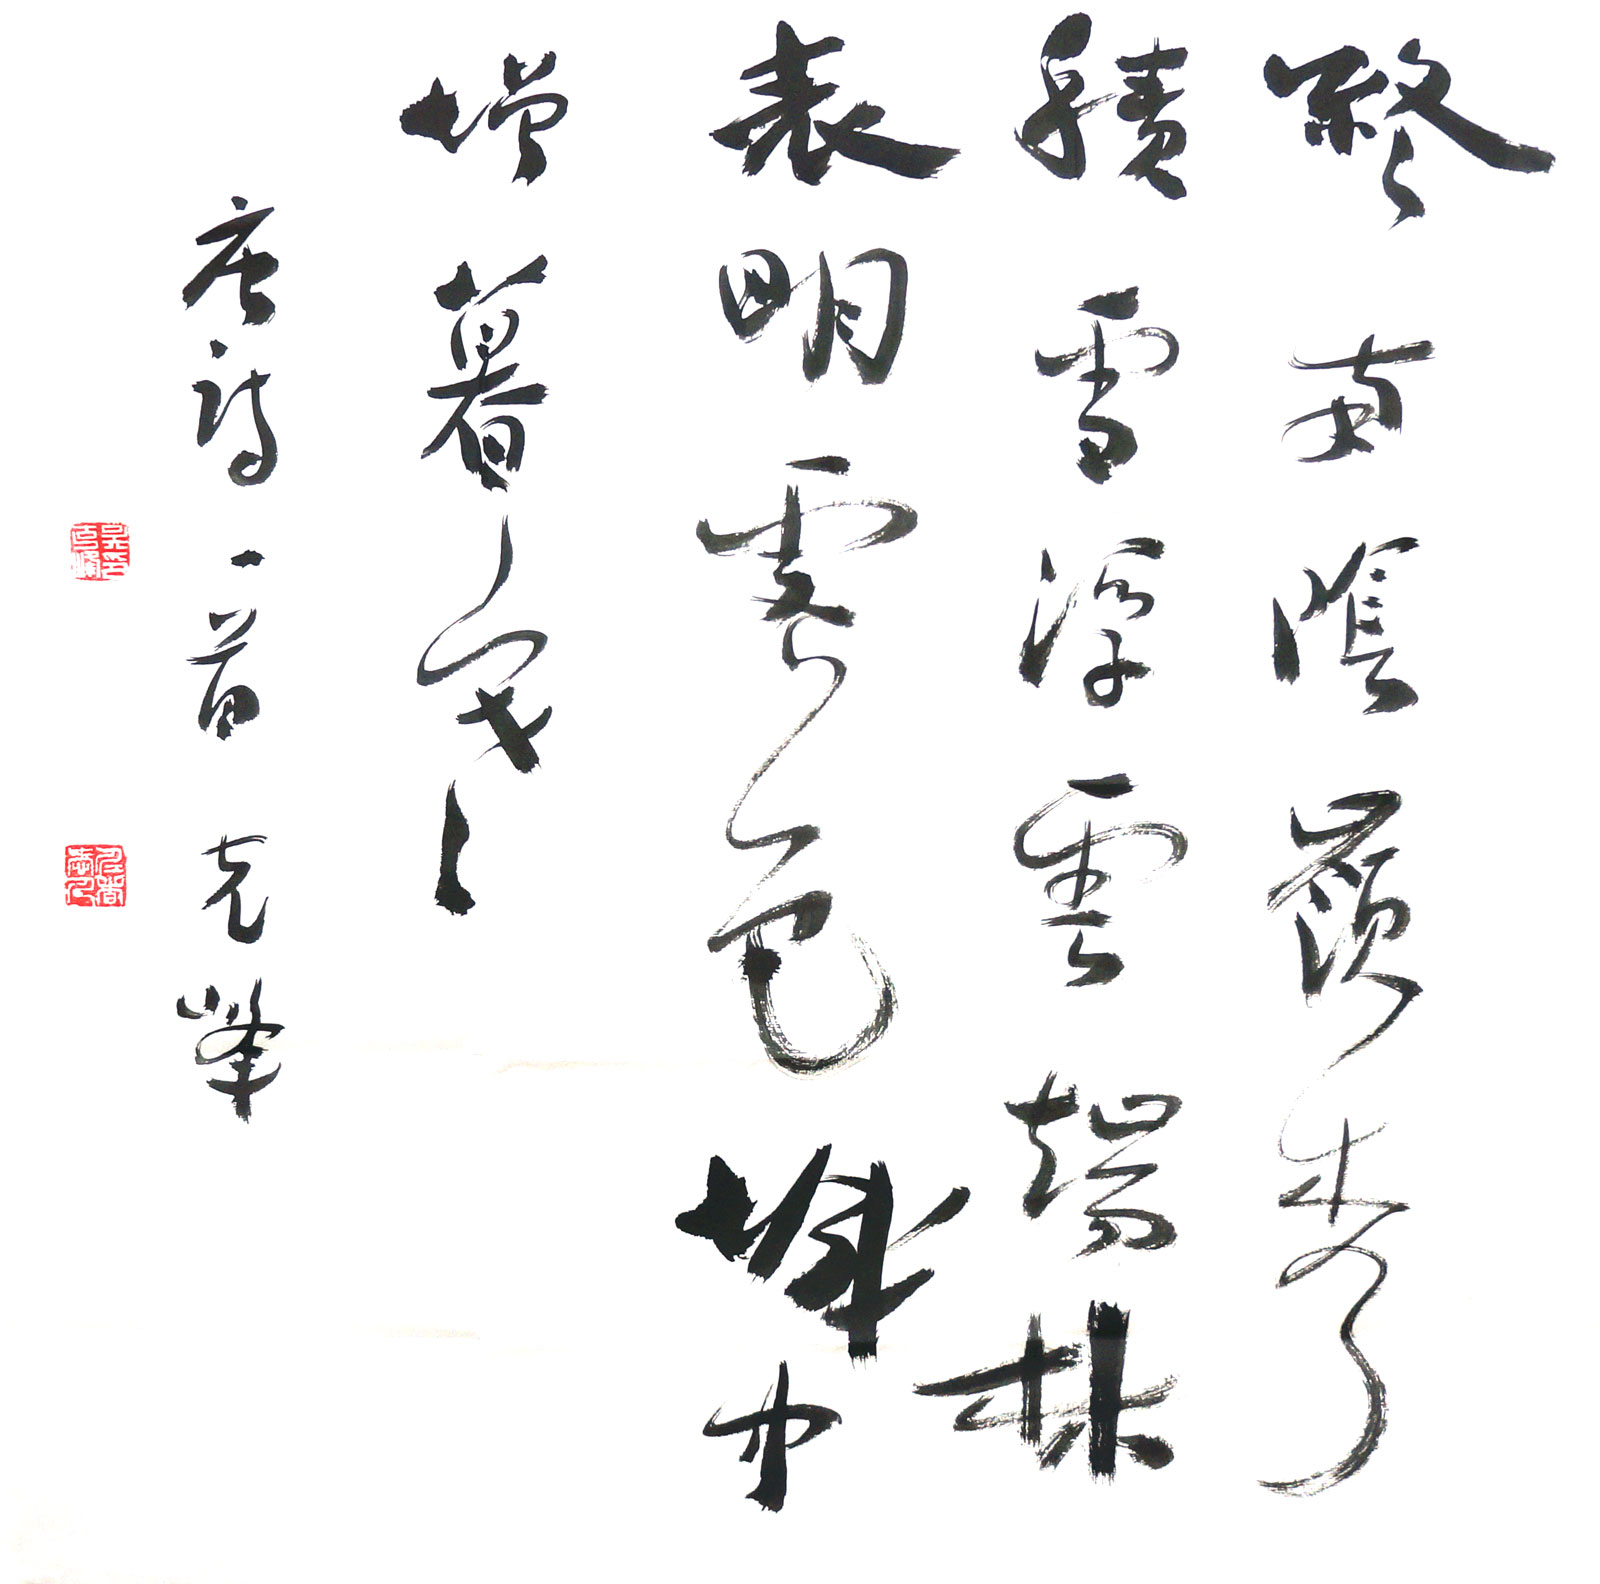 終南陰嶺秀
積雪浮雲端林
表明霽色城中
增暮寒
唐詩一首 克峰